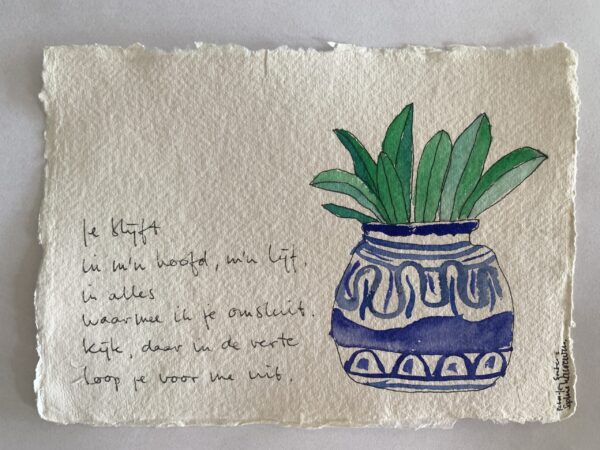 Je blijft
in m'n hoofd, m'n lijf.
in alles
waarmee ik je omsluit.
Kijk, daar in de verte
loop je voor me uit.